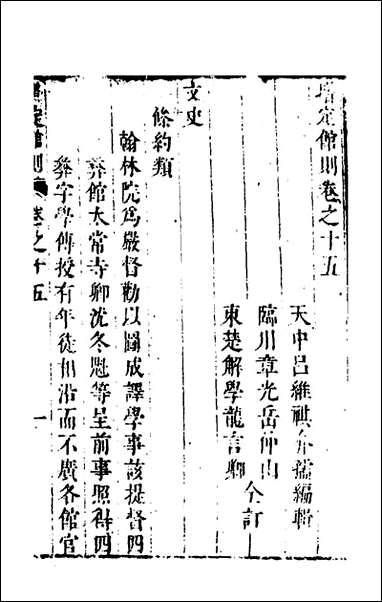 增定館則卷之十五
天中呂維祺介孺編輯
臨川章光岳仲山
東楚解學龍言卿
仝訂
文史
條約類
翰林院爲嚴督勸以圖成譯學事該提督四
彛館太常寺卿沈冬魁等呈前事照得四
彛字學傳授有年徒相沿而不廣各館官
定館則
卷之十五
一